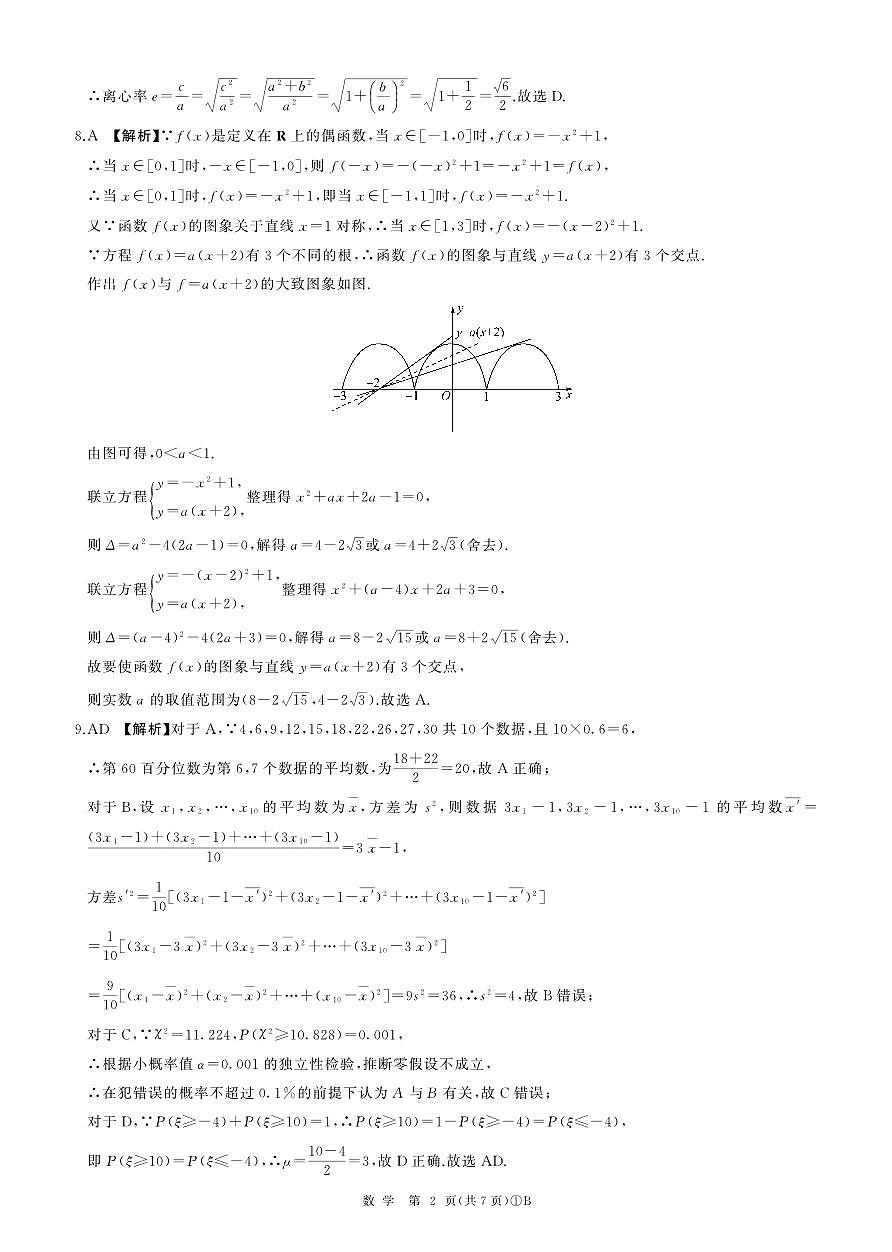 ∴离心率 e=c/a=√(c²/a²)=√((a²+b²)/a²)=√(1+(b/a)²)=√(1+1/2)=√6/2.故选 D.
8.A 【解析】∵f(x)是定义在 R 上的偶函数,当 x∈[-1,0]时,f(x)=-x²+1,
∴当 x∈[0,1]时,-x∈[-1,0],则 f(-x)=-(-x)²+1=-x²+1=f(x),
∴当 x∈[0,1]时,f(x)=-x²+1,即当 x∈[-1,1]时,f(x)=-x²+1.
又∵函数 f(x)的图象关于直线 x=1 对称,∴当 x∈[1,3]时,f(x)=-(x-2)²+1.
∵方程 f(x)=a(x+2)有 3 个不同的根,∴函数 f(x)的图象与直线 y=a(x+2)有 3 个交点.
作出 f(x)与 f=a(x+2)的大致图象如图.
y
y a(x+2)
-2
-3 -1 O 1 3 x
由图可得,0<a<1.
联立方程{y=-x²+1, y=a(x+2), 整理得 x²+ax+2a-1=0,
则 Δ=a²-4(2a-1)=0,解得 a=4-2√3或 a=4+2√3(舍去).
联立方程{y=-(x-2)²+1, y=a(x+2), 整理得 x²+(a-4)x+2a+3=0,
则 Δ=(a-4)²-4(2a+3)=0,解得 a=8-2√15或 a=8+2√15(舍去).
故要使函数 f(x)的图象与直线 y=a(x+2)有 3 个交点,
则实数 a 的取值范围为(8-2√15,4-2√3).故选 A.
9.AD 【解析】对于 A,∵4,6,9,12,15,18,22,26,27,30 共 10 个数据,且 10×0.6=6,
∴第 60 百分位数为第 6,7 个数据的平均数,为(18+22)/2=20,故 A 正确;
对于 B,设 x₁,x₂,…,x₁₀ 的平均数为x̄,方差为 s²,则数据 3x₁-1,3x₂-1,…,3x₁₀-1 的平均数x̄′=
((3x₁-1)+(3x₂-1)+…+(3x₁₀-1))/10=3x̄-1,
方差s′²=1/10[(3x₁-1-x̄′)²+(3x₂-1-x̄′)²+…+(3x₁₀-1-x̄′)²]
=1/10[(3x₁-3x̄)²+(3x₂-3x̄)²+…+(3x₁₀-3x̄)²]
=9/10[(x₁-x̄)²+(x₂-x̄)²+…+(x₁₀-x̄)²]=9s²=36,∴s²=4,故 B 错误;
对于 C,∵χ²=11.224,P(χ²≥10.828)=0.001,
∴根据小概率值 α=0.001 的独立性检验,推断零假设不成立,
∴在犯错误的概率不超过 0.1%的前提下认为 A 与 B 有关,故 C 错误;
对于 D,∵P(ξ≥-4)+P(ξ≥10)=1,∴P(ξ≥10)=1-P(ξ≥-4)=P(ξ≤-4),
即 P(ξ≥10)=P(ξ≤-4),∴μ=(10-4)/2=3,故 D 正确.故选 AD.
数 学 第 2 页(共 7 页)①B